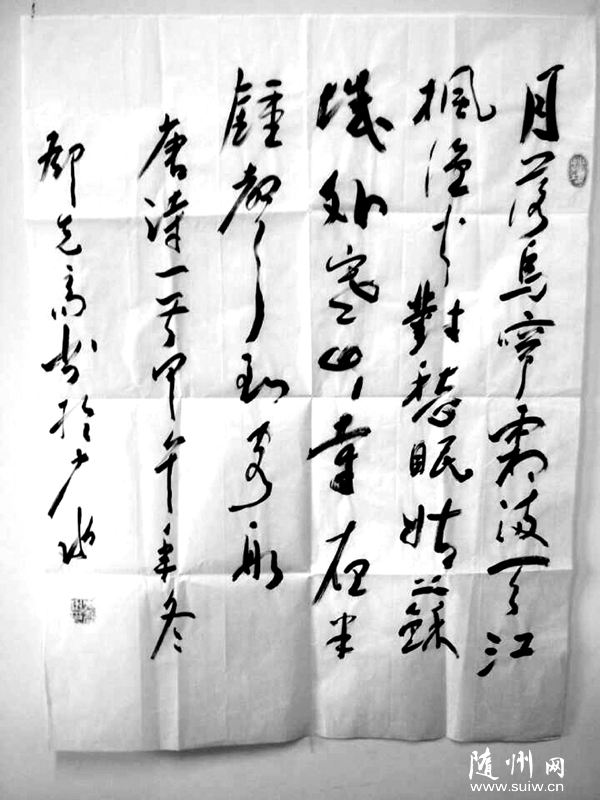 月落烏啼霜滿天江
楓漁火對愁眠姑蘇
城外寒山寺夜半
鍾聲到客船
唐詩一首甲午年冬
先高書於
随州网
www.suiw.cn